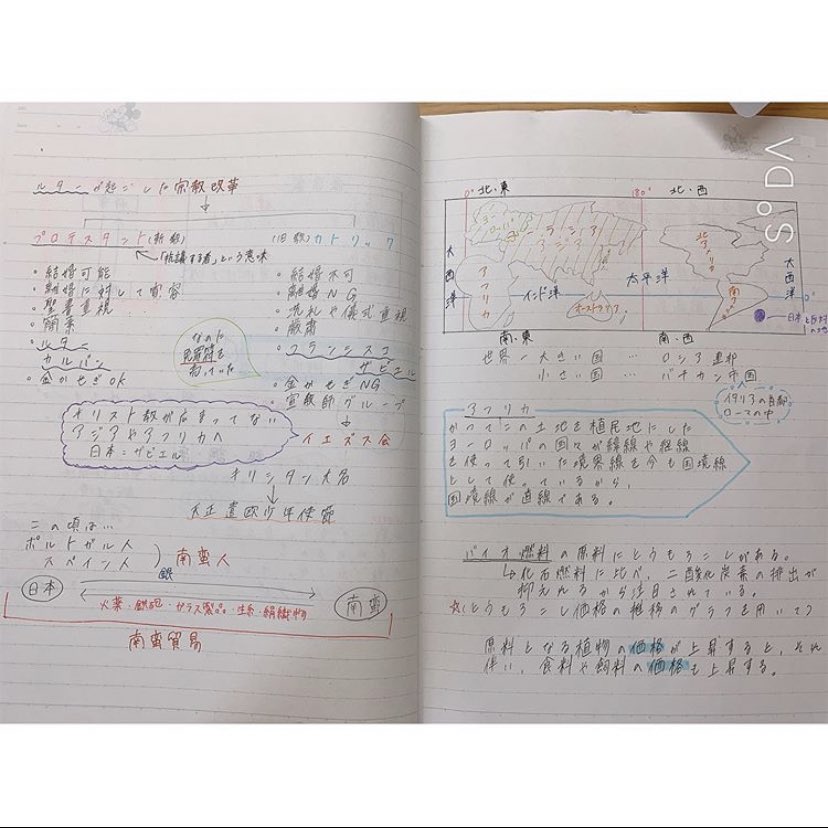 ルターが起こした宗教改革
プロテスタント(新教)
「抗議する者」という意味
・結婚可能
・離婚に対して寛容
・聖書重視
・簡素
・ルター
カルバン
・金かせぎOK
(旧教)カトリック
・結婚不可
・離婚NG
・洗礼や儀式重視
・厳粛
・フランシスコ
ザビエル
・金かせぎNG
・宣教師グループ
イエズス会
なのに
免罪符を
売っていた
キリスト教が広まってない
アジアやアフリカへ
日本:ザビエル
キリシタン大名
天正遣欧少年使節
この頃は…
ポルトガル人
スペイン人
南蛮人
銀
日本
南蛮
火薬・鉄砲・ガラス製品・生糸・絹織物
南蛮貿易
0° 北・東
180° 北・西
大西洋
ヨーロッパ
アジア
アフリカ
インド洋
オーストラリア
太平洋
北アメリカ
南アメリカ
大西洋
0°
日本と反対
南・東
南・西
世界一大きい国 … ロシア連邦
小さい国 … バチカン市国
イタリアの首都
ローマの中
アフリカ
かつてこの土地を植民地にした
ヨーロッパの国々が緯線や経線
を使って引いた境界線を今も国境線
として使っているから、
国境線が直線である。
バイオ燃料の原料にとうもろこしがある。
↳化石燃料に比べ、二酸化炭素の排出が
抑えれるから注目されている。
☆(とうもろこし価格の推移のグラフを用いて)
原料となる植物の価格が上昇すると、それ
伴い、食料や飼料の価格も上昇する。